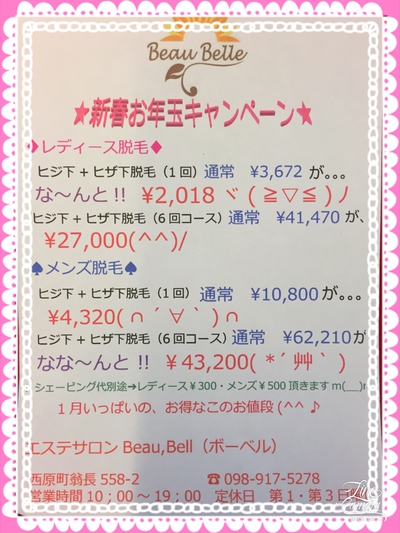 Beau Belle
★新春お年玉キャンペーン★
♦レディース脱毛♦
ヒジ下 + ヒザ下脱毛（1 回）通常　¥3,672 が｡｡｡
な～んと !!　¥2,018 ヾ ( ≧▽≦ ) ﾉ
ヒジ下 + ヒザ下脱毛（6 回コース）通常　¥41,470 が、
¥27,000(^^)/
♠メンズ脱毛♠
ヒジ下 + ヒザ下脱毛（1 回）通常　¥10,800 が｡｡｡
¥4,320( ∩ ´ ∀ ` ) ∩
ヒジ下 + ヒザ下脱毛（6 回コース）通常　¥62,210が
なな～んと !!　¥43,200( *´艸｀)
シェービング代別途➔レディース￥300・メンズ￥500 頂きます m(__)
１月いっぱいの、お得なこのお値段 (^^ ♪
エステサロン Beau,Bell（ボーベル）
西原町翁長 558-2　☎ 098-917-5278
営業時間 10；00 ～ 19；00　定休日　第 1・第 3 日